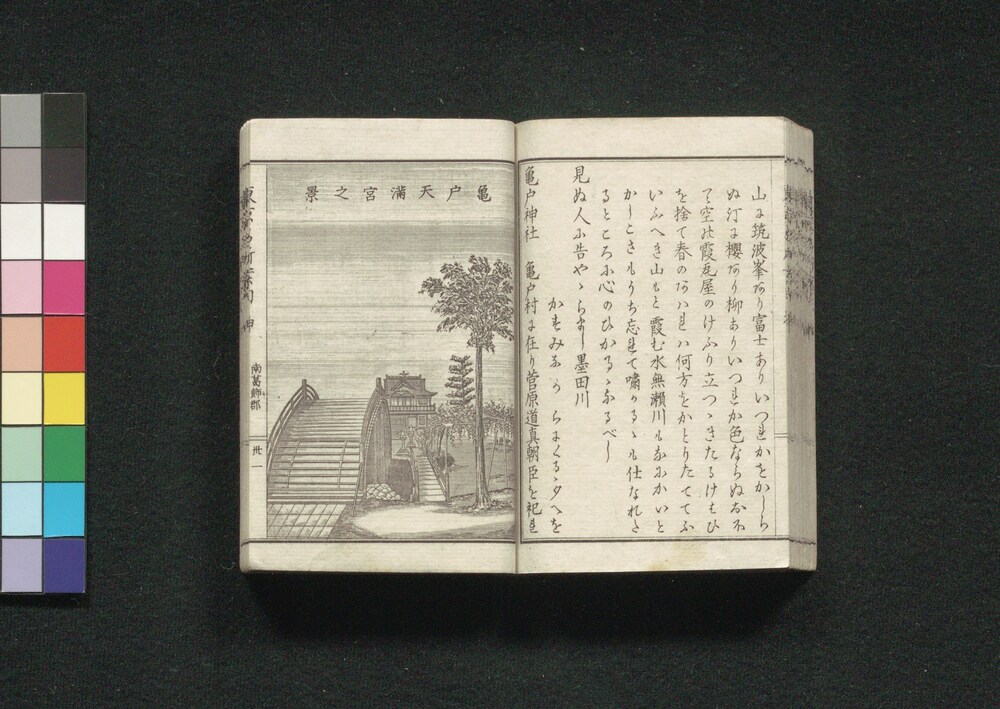 山に筑波峯あり富士ありいつれかをかしら
ぬ汀に櫻あり柳ありいつれか色ならぬおほ
空は霞苫屋のけふり立つゝきたるけはひ
を捨て春のあはれハ何方をかとりたてゝふ
いふへき山もと霞む水無瀬川もなにかいと
かしこさもうち忘れて嘯かるゝも仕なれた
るところに心のひかるゝなるべし
かすみながらにくるゝ夕へを
見ぬ人に告やゝらまし墨田川
亀戸神社 亀戸村に在り菅原道真朝臣を祀れ
亀戸天満宮之景
南葛飾郡
卅一